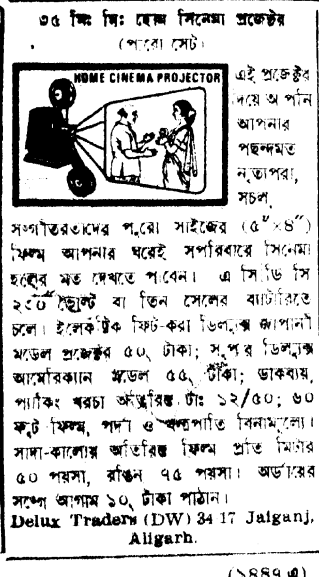 ৩৫ মিঃ মিঃ হোম সিনেমা প্রজেক্টর
(পুরো সেট)
HOME CINEMA PROJECTOR
এই প্রজেক্টর
দিয়ে আপনি
আপনার
পছন্দমত
নৃত্যপরা,
সচল,
সংগীতরতাদের পুরো সাইজের (৫"×৪")
ফিল্ম আপনার ঘরেই সপরিবারে সিনেমা
হলের মত দেখতে পাবেন। এ সি/ডি সি
২৫০ ভোল্ট বা তিন সেলের ব্যাটারিতে
চলে। ইলেকট্রিক ফিট-করা ডিলাক্স জাপানী
মডেল প্রজেক্টর ৫০্ টাকা; সুপার ডিলাক্স
আমেরিকান মডেল ৫৫্ টাকা; ডাকব্যয়,
প্যাকিং খরচা অতিরিক্ত টাঃ ১২/৫০; ৬০
ফুট ফিল্ম, পর্দা ও যন্ত্রপাতি বিনামূল্যে।
সাদা-কালোয় অতিরিক্ত ফিল্ম প্রতি মিটার
৫০ পয়সা, রঙিন ৭৫ পয়সা। অর্ডারের
সঙ্গে আগাম ১০্ টাকা পাঠান।
Delux Traders (DW) 34 17 Jaiganj,
Aligarh.
(১৪৪৭এ)